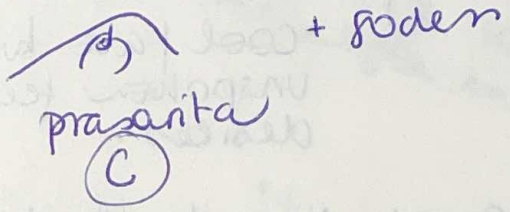 + goden
prasarita
C